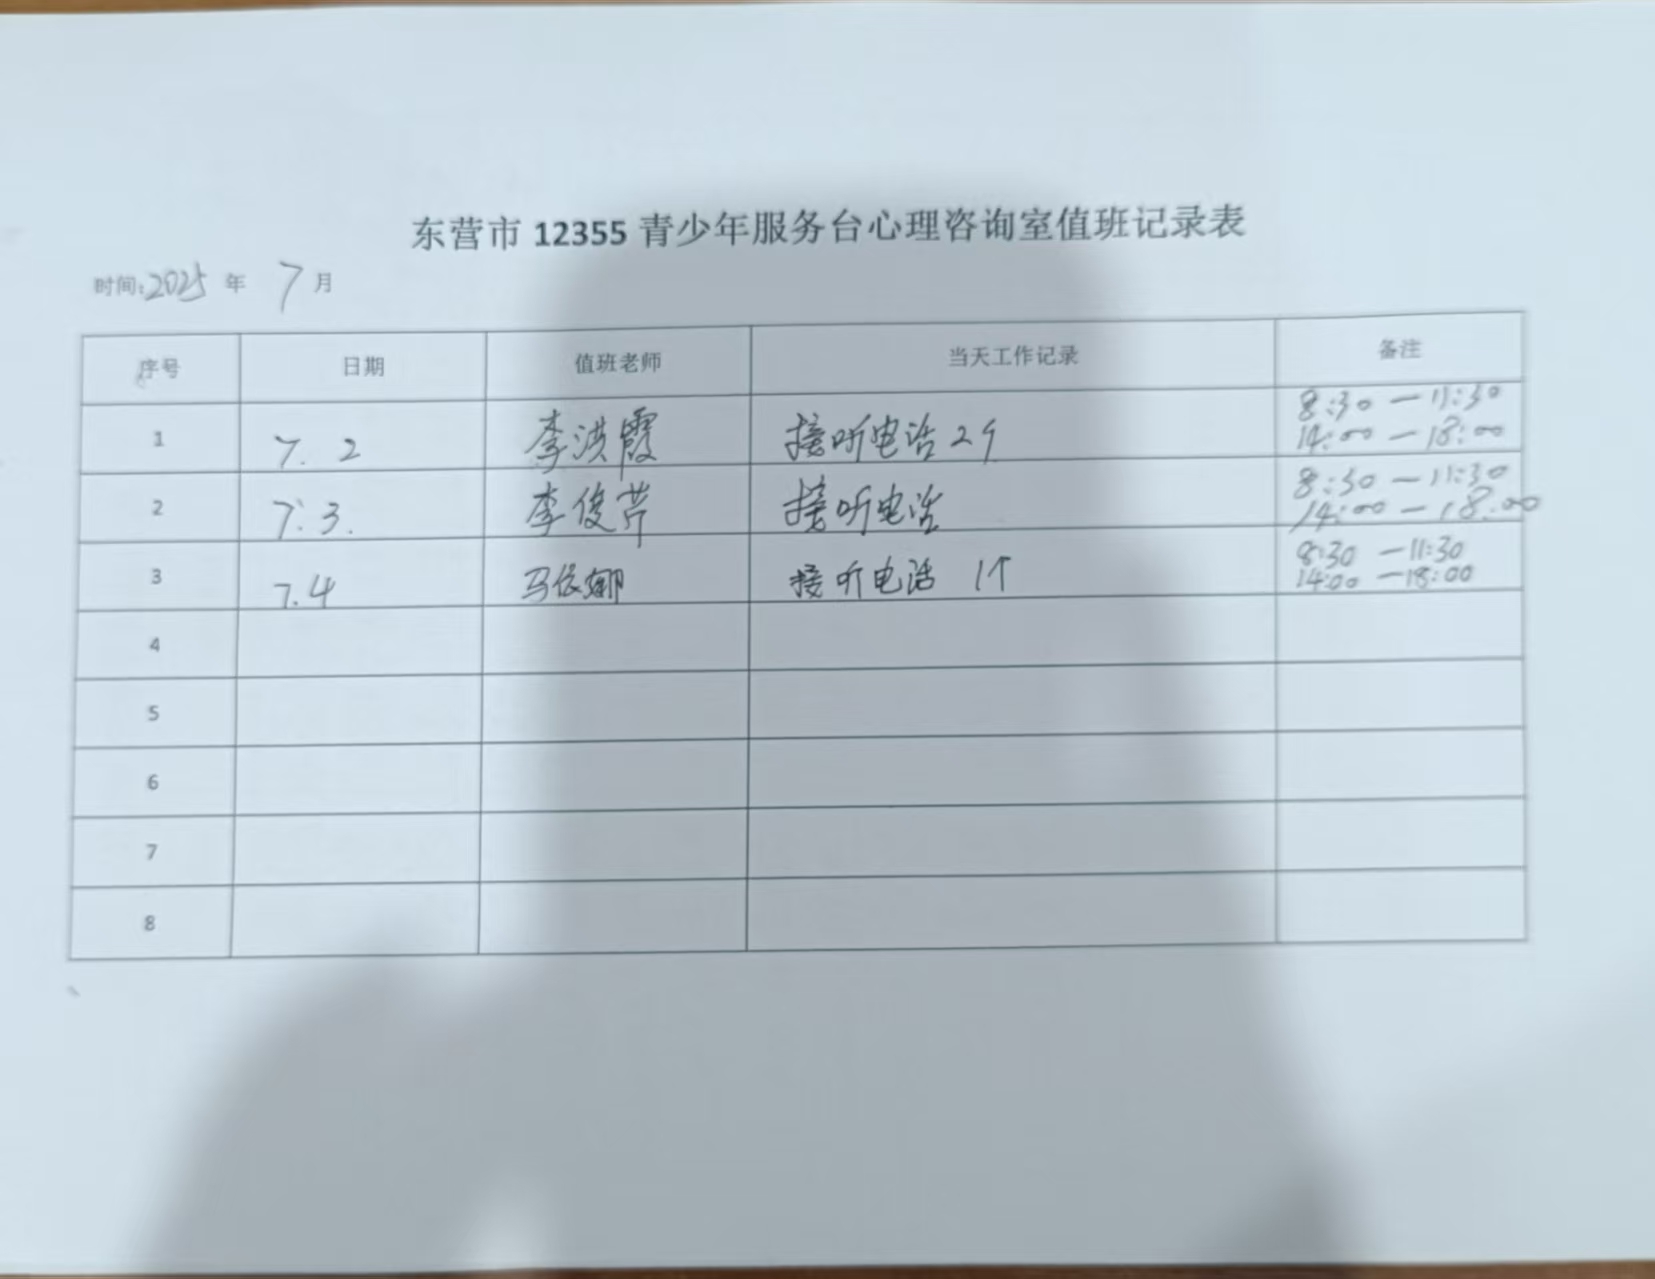 东营市 12355 青少年服务台心理咨询室值班记录表
时间:2025 年 7 月
序号 日期 值班老师 当天工作记录 备注
1 7. 2 李洪霞 接听电话 2个 8:30 — 11:30
14:00 — 18:00
2 7. 3. 李俊芹 接听电话 8:30 — 11:30
14:00 — 18:00
3 7.4 马依娜 接听电话 1个 8:30 — 11:30
14:00 — 18:00
4
5
6
7
8